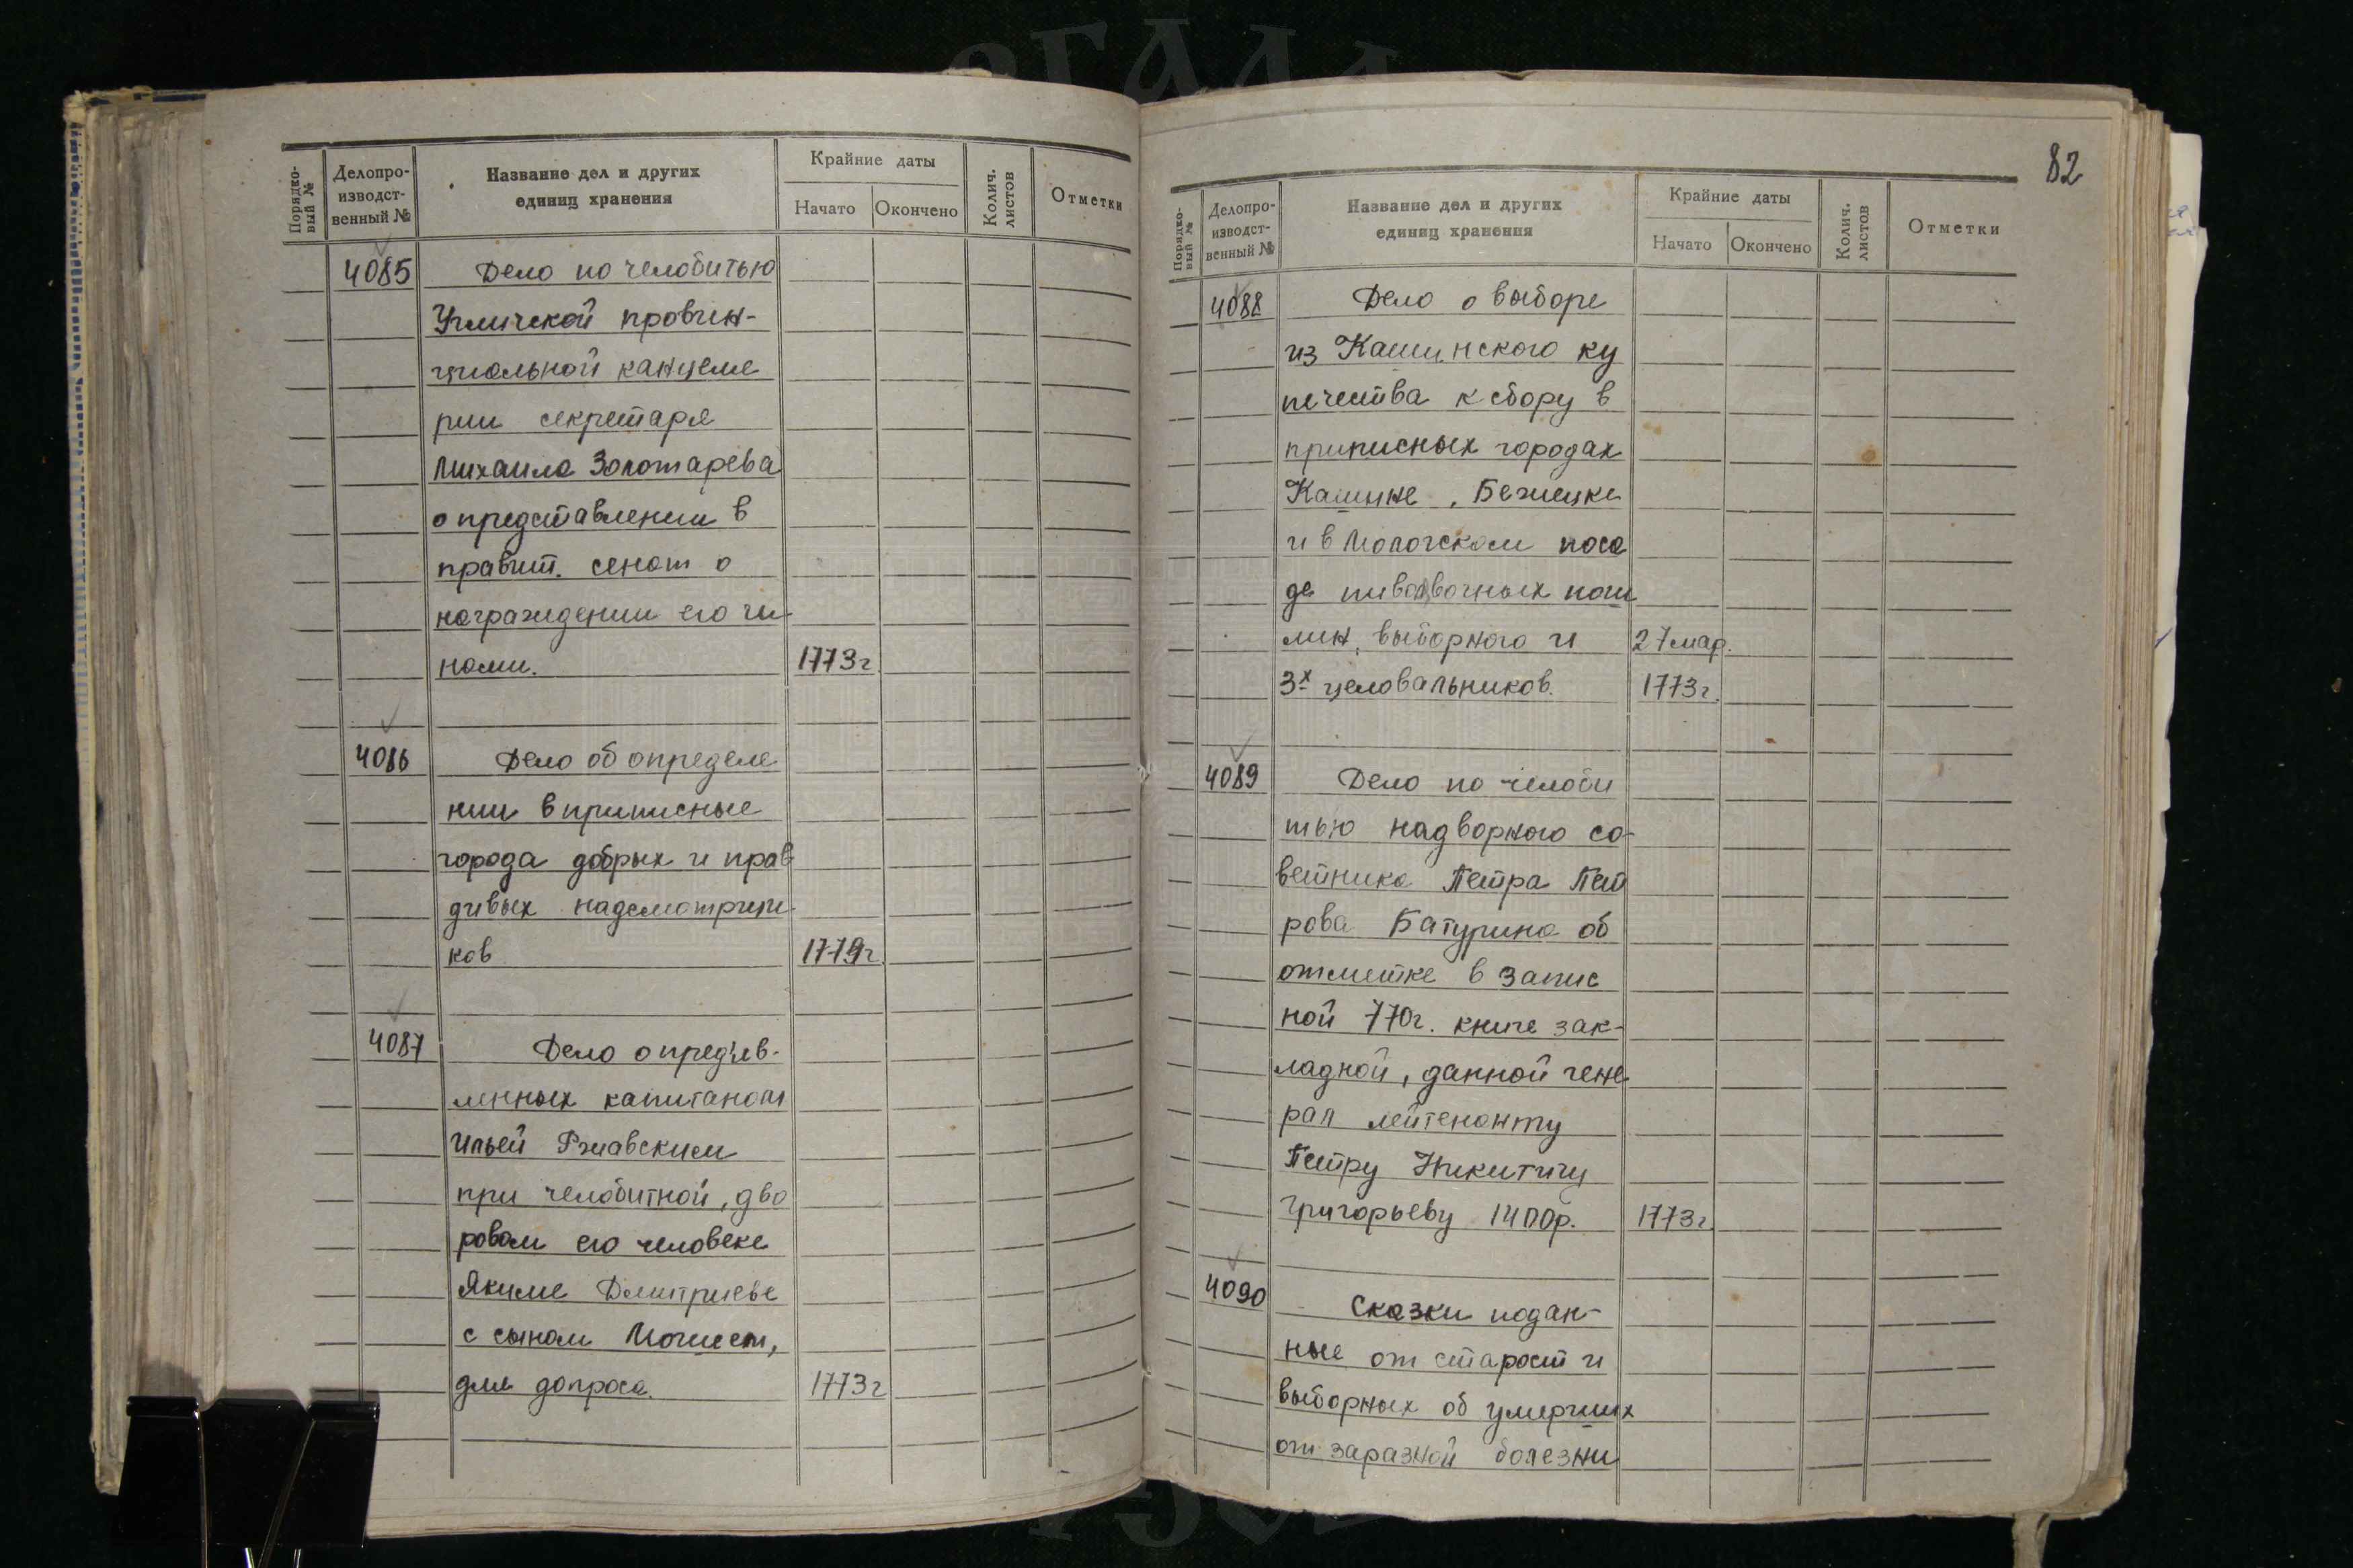 Порядко-
вый №
Делопро-
изводст-
венный №
Название дел и других
единиц хранения
Крайние даты
Начато
Окончено
Колич.
листов
Отметки
4085
Дело по челобитью
Угличской провин-
циальной канцеля
рии секретаря
Михаила Золотарева
о представлении в
правит. сенат о
награждении его чи-
нами.
1773г
4086
Дело об определе
нии в приписные
города добрых и прав
дивых надсмотрщи-
ков
4087
Дело о предъяв-
ленных капитаном
Ильей Ржавским
при челобитной, дво
ровом его человеке
Якиме Дмитриеве
с сыном
для допроса.
1773г
82
Порядко-
вый №
Делопро-
изводст-
венный №
Название дел и других
единиц хранения
Крайние даты
Начато
Окончено
Колич.
листов
Отметки
4088
Дело о выборе
из Кашинского ку
печества к сбору в
приписных городах
Кашине, Бежецке
и в Молочском поса
де пивоварочных пош
лин, выборного и
27 мар.
3х целовальников.
1773г.
4089
Дело по челоби
тью надворного со-
ветника Петра Пет
рова Батурина об
отметке в запис
ной 770г. книге зак-
ладной, данной гене
рал лейтенанту
Петру Никитичу
Григорьеву 1400р.
1773г
4090
Сказки подан-
ные от старост и
выборных об умерших
от заразной болезни